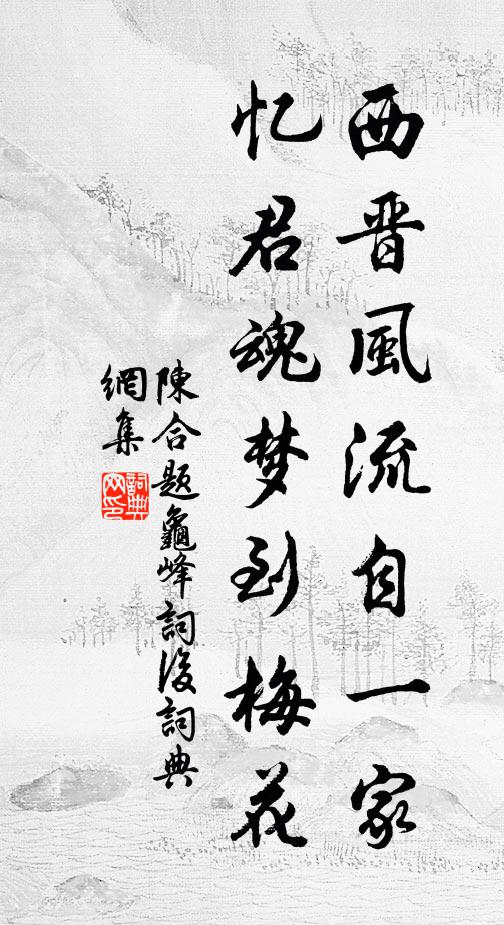 西晋風流自一家
忆君魂梦到梅花
陳合题龜峰詞後詞典
網集
詞典
网印